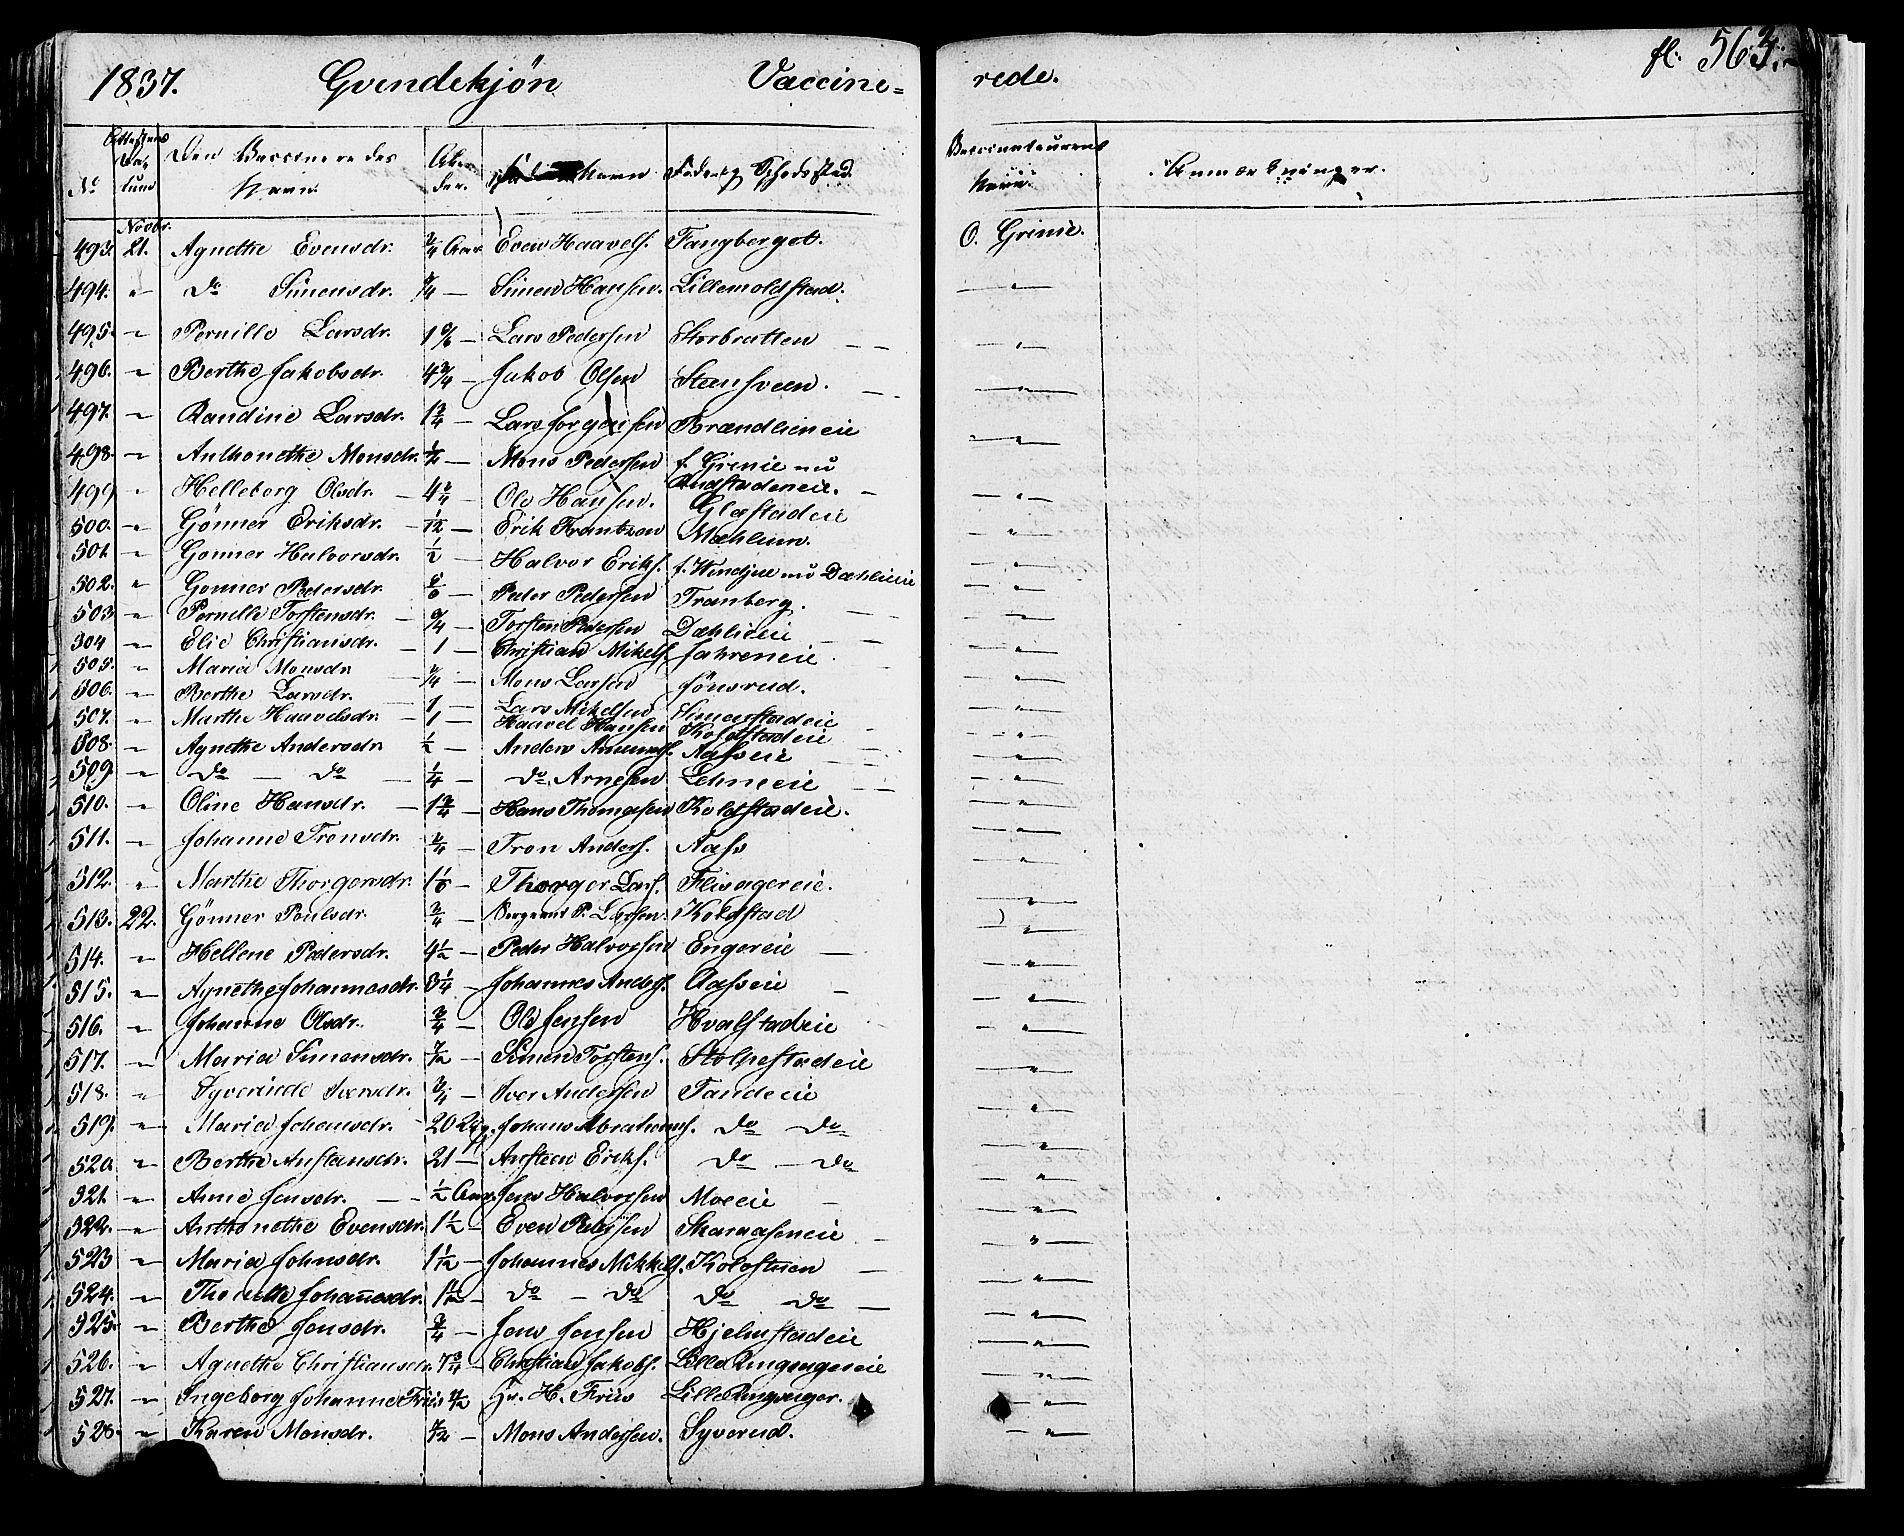 1837. Qvindekjön Vaccine= rede. fl. 563.
No Attestens Datum Den Vaccineredes Navn Alder. Navn Faderog Opholdssted. Vaccinateurens Navn. Anmærkninger.
Novbr.
493. 21. Agnethe Evensdr. 3/4 Aar Even Haavels. Fangberget. O. Grinie.
494. " Do Simensdr. 3/4 — Simen Hansen. Lillemoldstad. — " —
495. " Pernille Larsdr. 1 — Lars Pedersen Storbratten — " —
496. " Berthe Jakobsdr. 4 3/4 — Jakob Olsen Steensveen. — " —
497. " Randine Larsdr. 1 3/4 — Lars Jorgensen Brændlieneie — " —
498. " Anthonethe Monsdr. 1/2 — Mons Pedersen f. Grinie nu Rudstadeneie. — " —
499 " Helleborg Olsdr. — 4 3/4 — Ole Hansen. Glæstadeie — " —
500. " Gönner Eriksdr. — 1/12 — Erik Frantzen Mæhlum. — " —
501. " Gönner Halvorsdr. 1/2 — Halvor Eriks. f. Windju nu Dæhlieie — " —
502. " Gönner Pedersdr. — Peder Pedersen Tranberg. — " —
503. " Pernille Torstensdr. — 3/4 — Torsten Pedersen Dæhlieeie — " —
504 " Elie Christiansdr. — 1 — Christian Mikels. Jahreneie — " —
505. " Maria Monsdr. — 3/4 — Mons Larsen Jönsrud. — " —
506. " Berthe Larsdr. — 1 — Lars Mikelsen Simenstadeie — " —
507. " Marthe Haavelsdr. — 1 — Haavel Hansen Koldstadeie — " —
508. " Agnethe Andersdr. 1/2 — Anders Amunds. Aasseie — " —
509 " Do — Do — 1/4 — Do Arnesen Lehneeie — " —
510. " Oline Hansdr. — 1 3/4 — Hans Thomasen Koldstadeie. — " —
511. " Johanne Tronsdr. 3/4 — Tron Anders. Aass — " —
512. " Marthe Thorgersdr. 1 1/6 — Thorger Lars. Flisagereie. — " —
513. 22. Gönner Poulsdr. 3/4 — Sergeant P. Larsen. Koldstad — " —
514. " Hellene Pedersdr. 4 1/2 — Peder Halvorsen Engereie — " —
515. " Agnethe Johannesdr. 3 1/4 — Johannes Anders. Aasseie — " —
516. " Johanne Olsdr. 3/4 — Ole Jensen Hvalstadeie — " —
517. " Maria Simensdr. 7/12 — Simen Torstens. Stolpestadeie — " —
518. " Syverinde Iversdr. 3/4 — Iver Andersen Tandeeie — " —
519. " Maria Johansdr. 20 Johans Abrahams. Do Do — " —
520. " Berthe Anstensdr. 21 — Ansten Eriks. Do — Do — " —
521. " Anne Jensdr. — 1/2 Aar Jens Halvorsen Moeeie — " —
522. " Anthonethe Evensdr. 1 1/2 — Even Pedersen Skaraaseneie — " —
523 " Maria Johnsdr. 1 1/12 — Johannes Mikkels. Kolostuen — " —
524. " Thorethe Johanesdr. 1 1/12 — Do — Do Do Do — " —
525. " Berthe Jensdr. 3/4 — Jens Jensen Hjelmstadeie — " —
526. " Agnethe Christiansdr. 7 3/4 — Christian Jakobs. Lille Ringsagereie — " —
527. " Ingeborg Johanne Friis Hr. H. Friis Lille Ringsager. — " —
528. " Karen Monsdr. 7/12 — Mons Andersen. Syverud. — " —